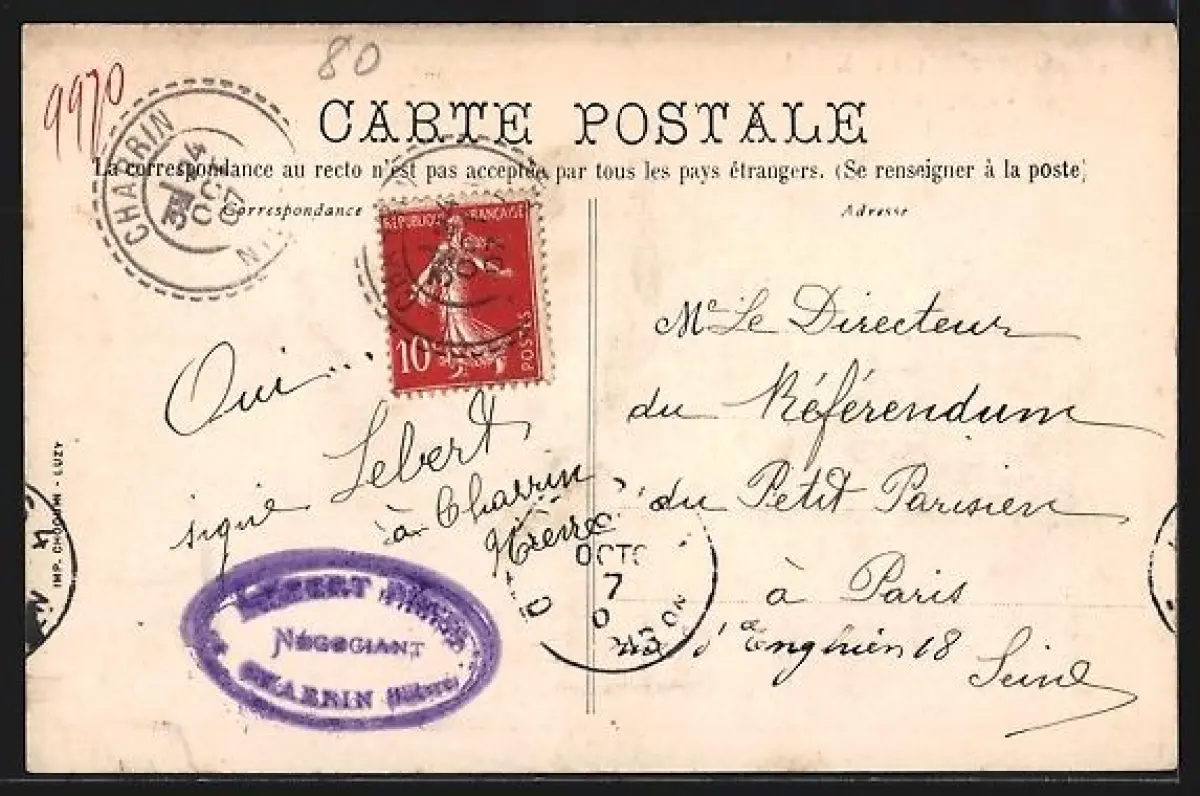 9970
80
CARTE POSTALE
La correspondance au recto n'est pas acceptée par tous les pays étrangers. (Se renseigner à la poste)
Correspondance
Adresse
CHARRIN
4
OCT
07
REPUBLIQUE FRANÇAISE
10c
POSTES
Oui...
signé Lebert
à Charrin
Nièvre
Mr Le Directeur
du Référendum
du Petit Parisien
à Paris
d'Enghien 18
Seine
OCTO
7
LEBERT
NÉGOCIANT
CHARRIN (Nièvre)
IMP. CHOQUIN - LUZY